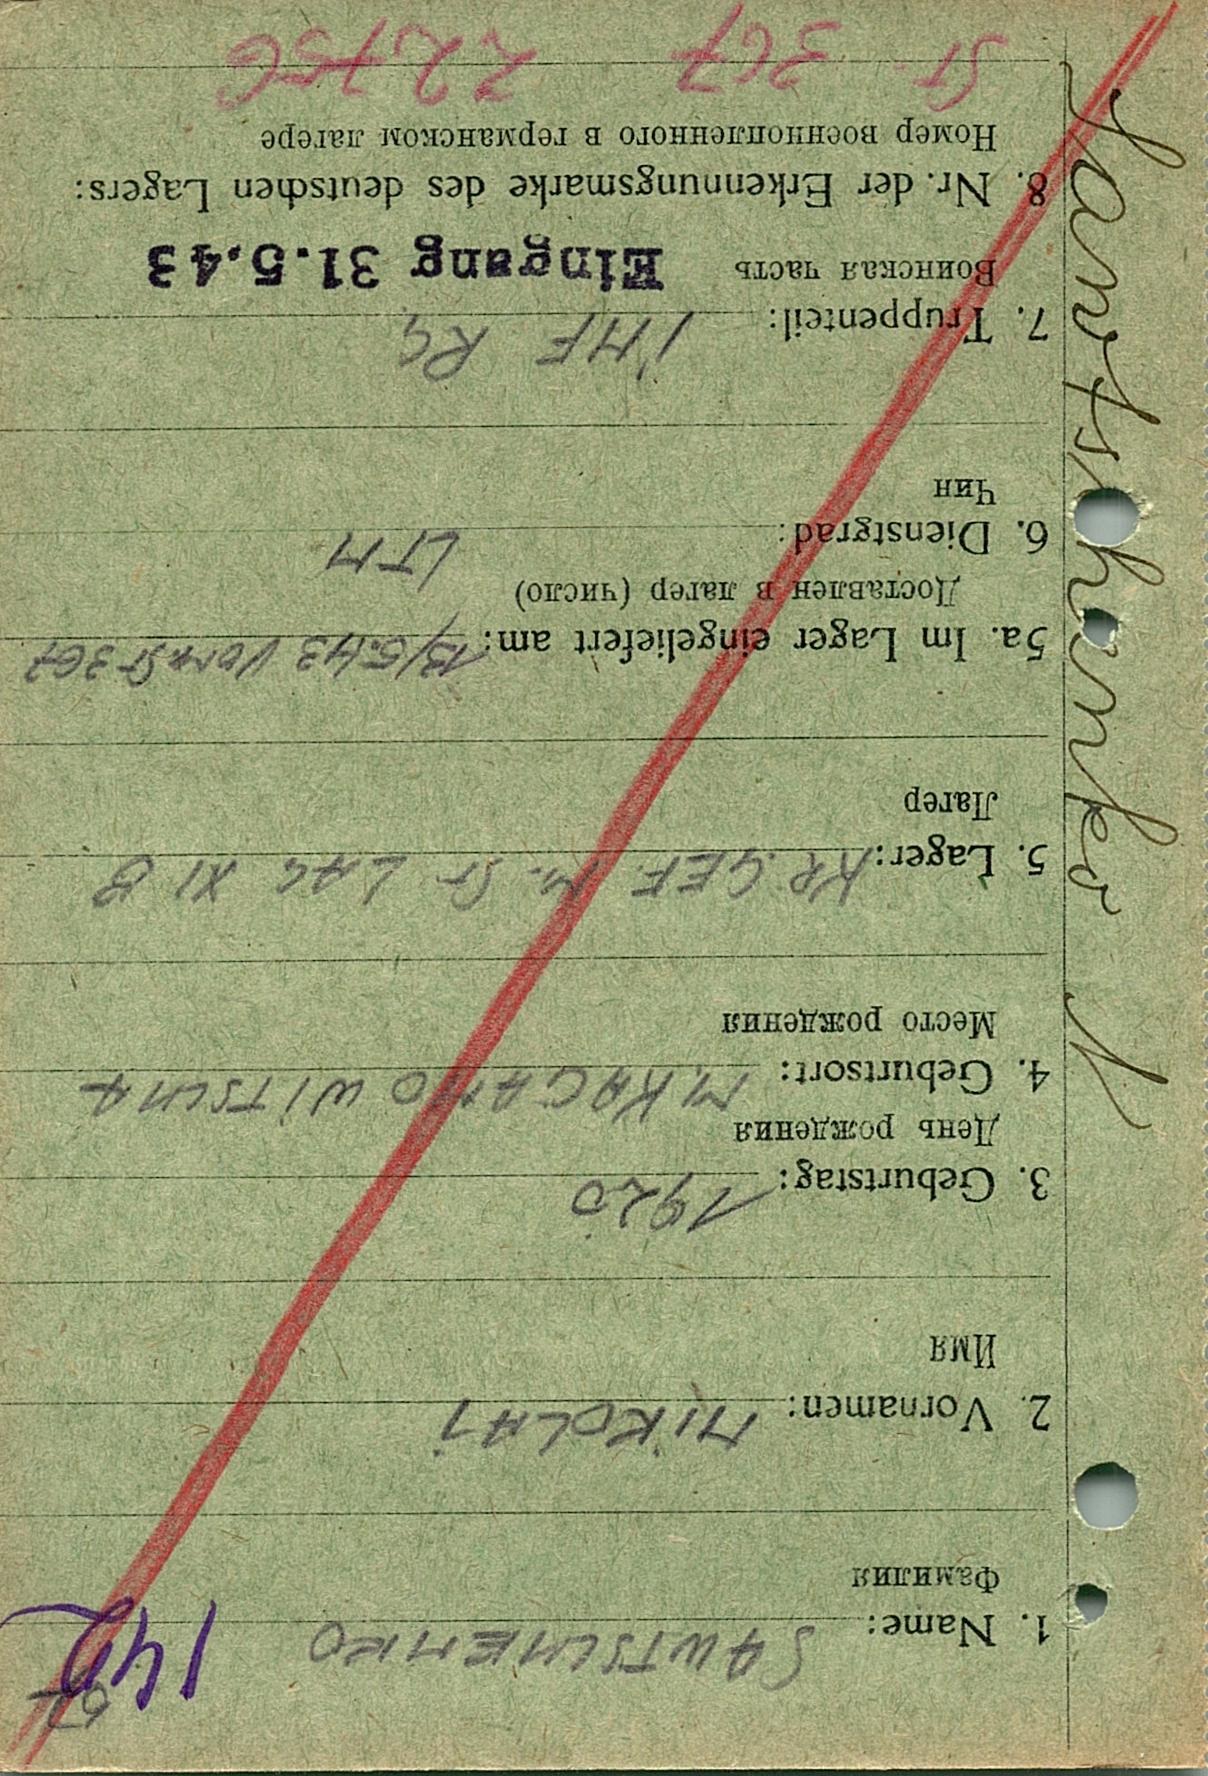 142
1. Name: SAWTSCHENKO
Фамилия
2. Vornamen: NIKOLAJ
Имя
3. Geburtstag: 1920
День рождения
4. Geburtsort: M. KAGANOWITSCHA
Место рождения
5. Lager: KR. GEF. M. ST LAG XI B
Лагер
5a. Im Lager eingeliefert am: 13/5.43 Vom St 367
Доставлен в лагер (число)
6. Dienstgrad: LTN
Чин
7. Truppenteil: INF RG
Воинская часть Eingang 31.5.43
8. Nr. der Erkennungsmarke des deutschen Lagers:
Номер военнопленного в германском лагере
St 367 22756
Sawtschenko N